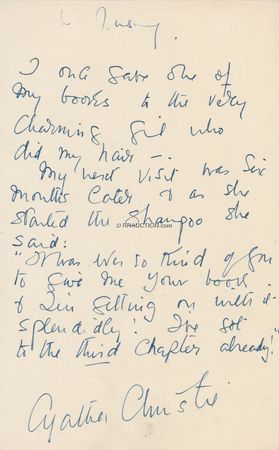 I once gave one of
my books to the very
charming girl who
did my hair –.
My next visit was six
months later & as she
started the shampoo she
said:
"It was ever so kind of you
to give me your book.
& I'm getting on with it
splendidly! I've got
to the third chapter already!"
Agatha Christie
RRAUCTION.COM